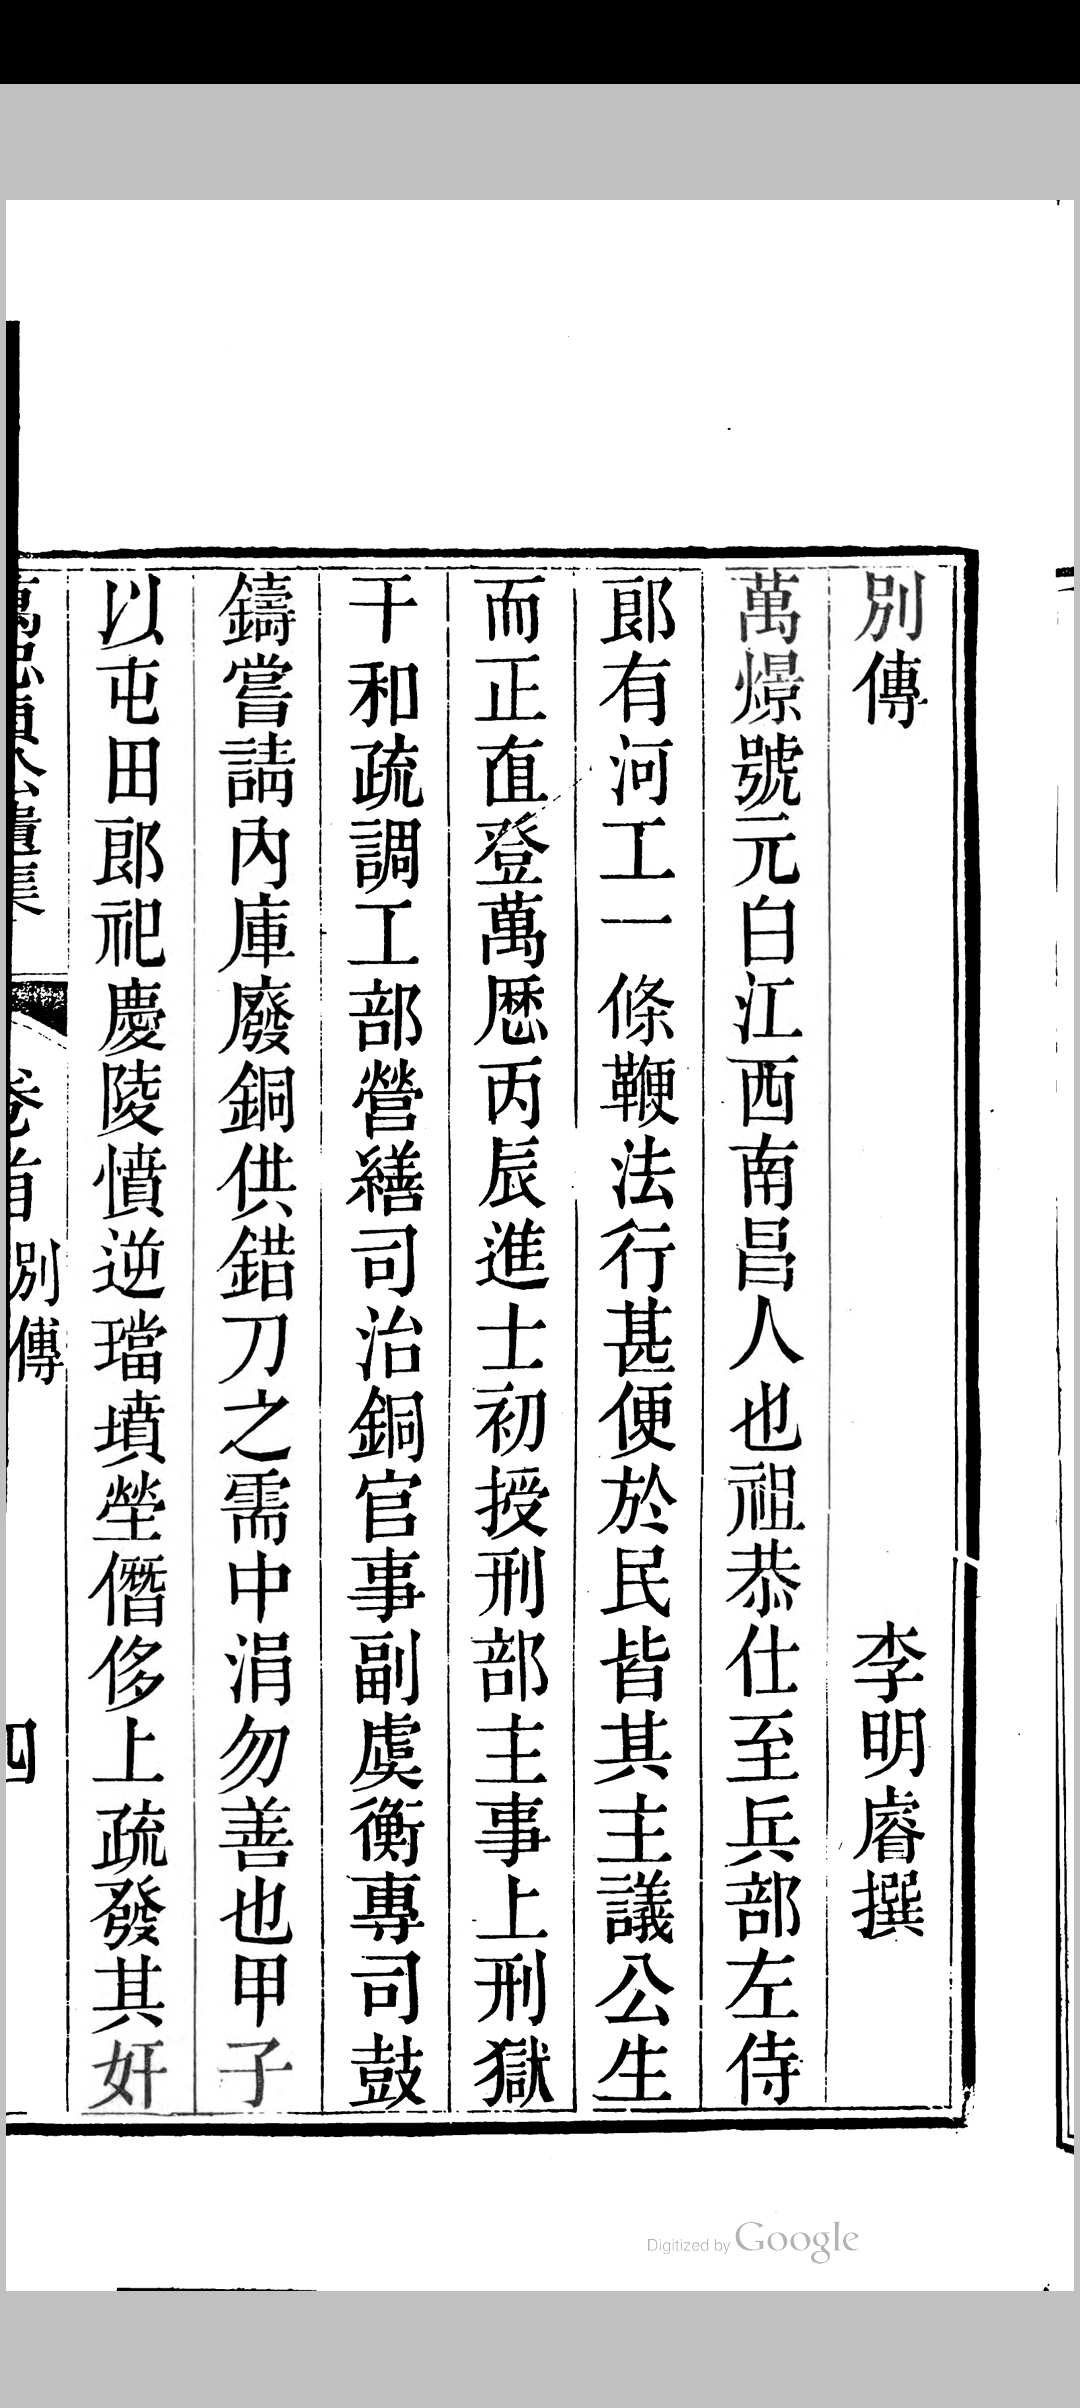 別傳
李明睿撰
萬燝號元白江西南昌人也祖恭仕至兵部左侍
郎有河工一條鞭法行甚便於民皆其主議公生
而正直登萬厯丙辰進士初授刑部主事上刑獄
干和疏調工部營繕司治銅官事副虞衡專司鼓
鑄嘗請內庫廢銅供錯刀之需中涓勿善也甲子
以屯田郎祀慶陵憤逆璫墳塋僭侈上疏發其奸
萬忠貞公遺集
卷首
別傳
四
Digitized by Google